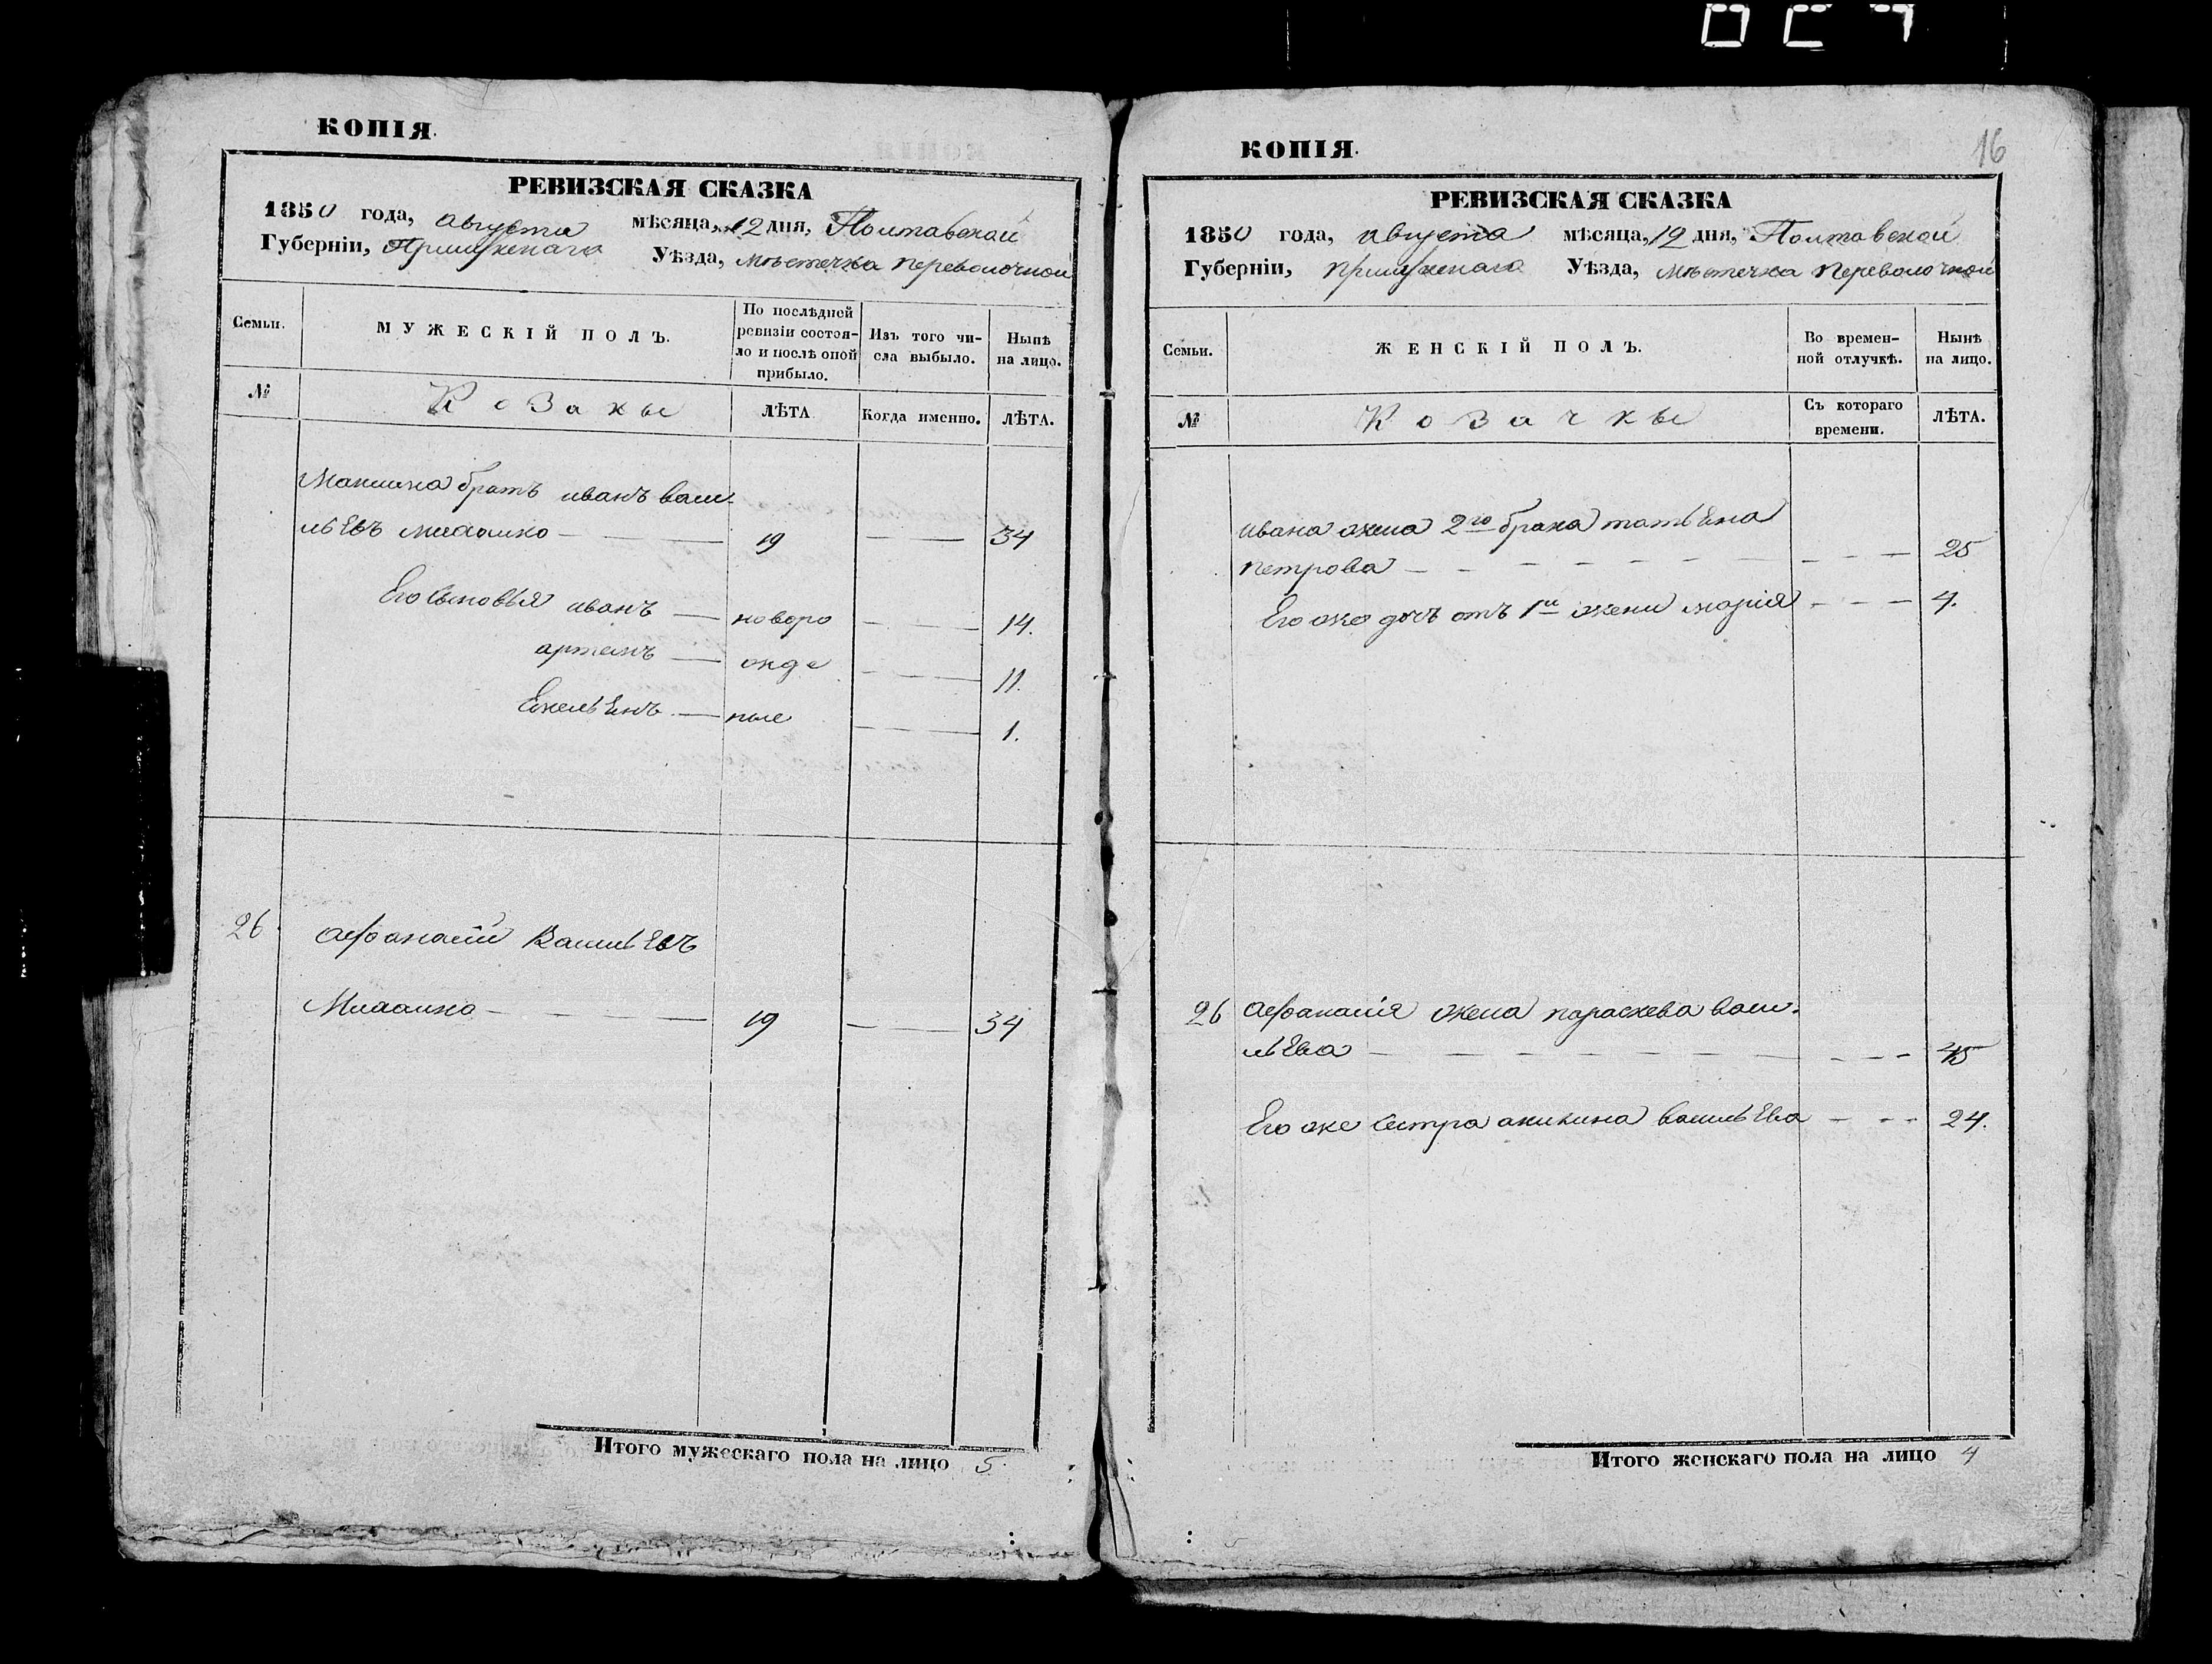 КОПІЯ.
РЕВИЗСКАЯ СКАЗКА
1850 года, августа мѣсяца, 12 дня, Полтавской
Губерніи, Прилукскаго Уѣзда, мѣстечка Переволочной
Семьи.
МУЖЕСКІЙ ПОЛЪ.
По послѣдней ревизіи состоя-
ло и послѣ оной прибыло.
Изъ того чи-
сла выбыло.
Нынѣ
на лицо.
№
Козаки
ЛѢТА
Когда именно.
ЛѢТА.
братъ иванъ васи-
льевъ 19 — — 34
Его сыновья иванъ — новоро — — 14.
артемъ — жде — — 11.
Емельянъ — ные — 1.
26 афанасій Васильевъ
19 — — 34
Итого мужескаго пола на лицо 5.
16
КОПІЯ.
РЕВИЗСКАЯ СКАЗКА
1850 года, августа мѣсяца, 12 дня, Полтавской
Губерніи, прилукскаго Уѣзда, мѣстечка Переволочной
Семьи.
ЖЕНСКІЙ ПОЛЪ.
Во времен-
ной отлучкѣ.
Нынѣ
на лицо.
№
Козачки
Съ котораго
времени.
ЛѢТА.
ивана жена 2го брака татьена
петрова — — — 25
Его же дочъ отъ 1й жени марія — — — 4.
26 афанасія жена параскева васи-
льева — — — 45
Его же сестра акилина васильева — — — 24.
Итого женскаго пола на лицо 4